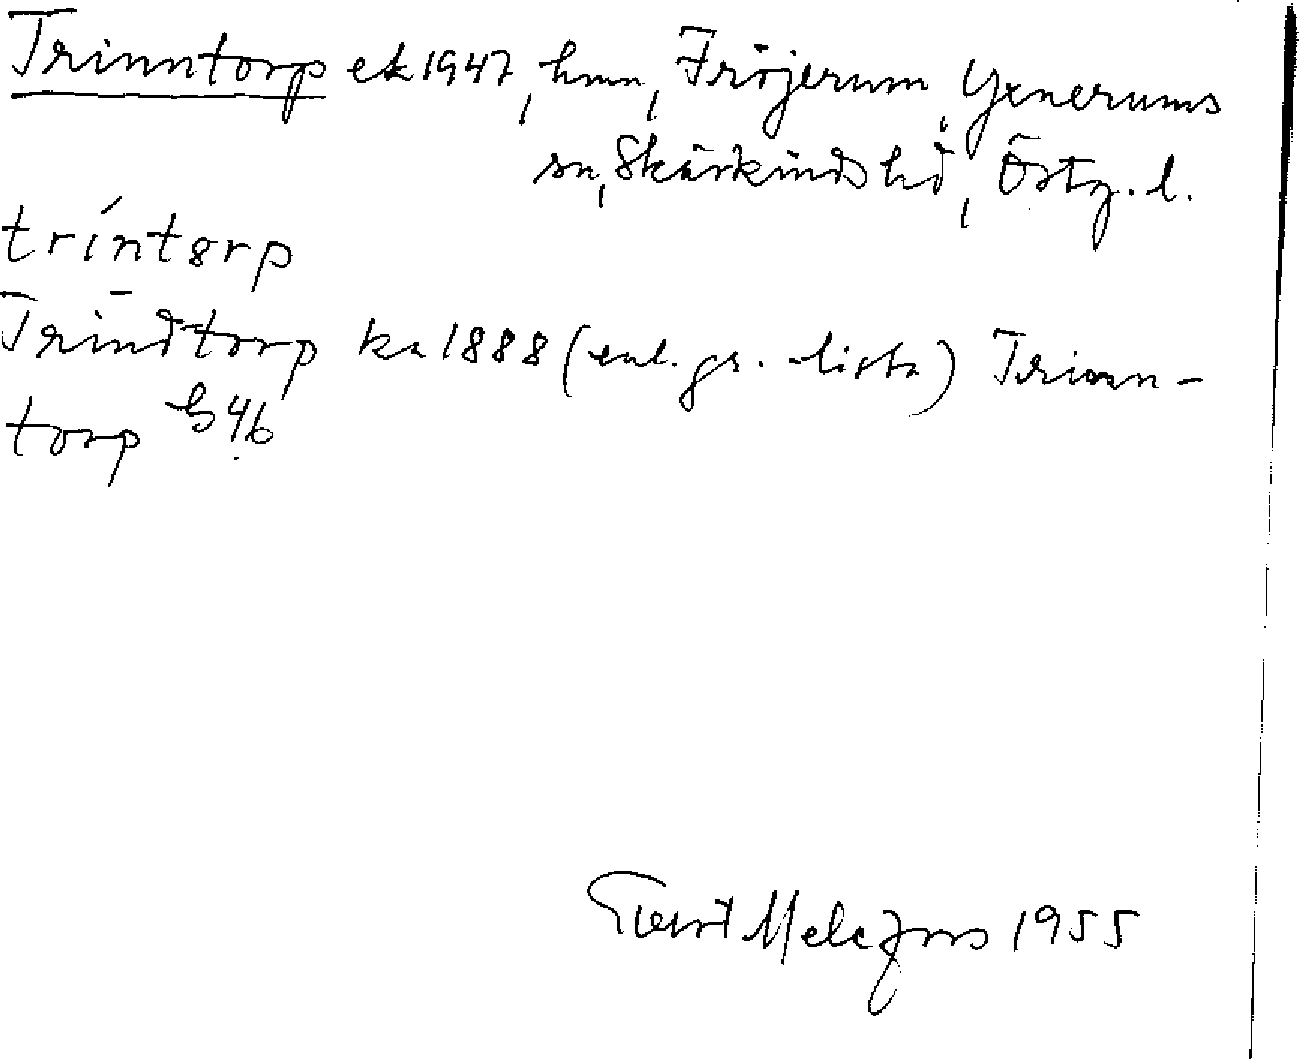 Trinntorp ek 1947, hmn, Fröjerum, Yxnerums
sn, Skärkinds hd, Östg. l.
tríntorp
Trindtorp ka 1888 (enl. gr. lista) Trinn-
torp b 46
Melefors 1955